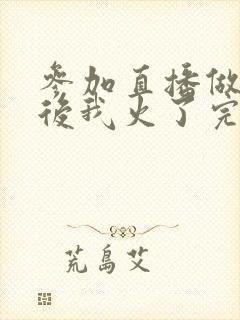 参加直播做
後我火了完
荒島艾